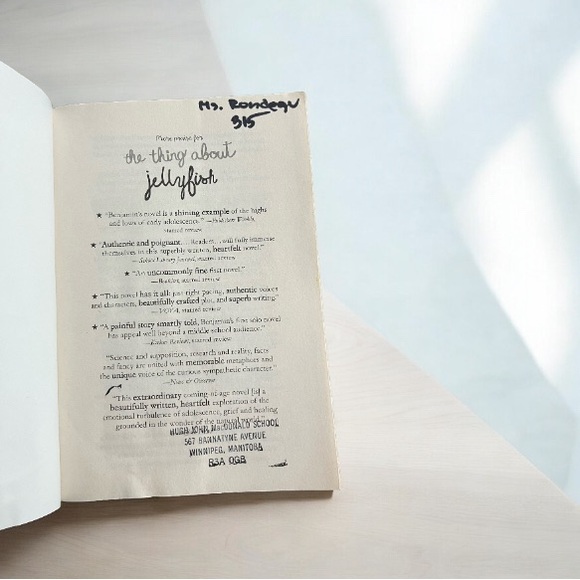 Ms. Rondeau
315
More praise for
the thing about
jellyfish
★ "Benjamin's novel is a shining example of the highs
and lows of early adolescence." —Publishers Weekly,
starred review
★ "Authentic and poignant.... Readers...will fully immerse
themselves in this superbly written, heartfelt novel."
—School Library Journal, starred review
★ "An uncommonly fine first novel."
—Booklist, starred review
★ "This novel has it all: just right pacing, authentic voices
and characters, beautifully crafted plot, and superb writing."
—VOYA, starred review
★ "A painful story smartly told, Benjamin's first solo novel
has appeal well beyond a middle school audience."
—Kirkus Reviews, starred review
"Science and superstition, research and reality, facts
and fancy are united with memorable metaphors and
the unique voice of the curious sympathetic character."
—News & Observer
"This extraordinary coming-of-age novel [is] a
beautifully written, heartfelt exploration of the
emotional turbulence of adolescence, grief and healing
grounded in the wonder of the natural world."
HUGH JOHN MacDONALD SCHOOL
567 BANNATYNE AVENUE
WINNIPEG, MANITOBA
R3A 0G8